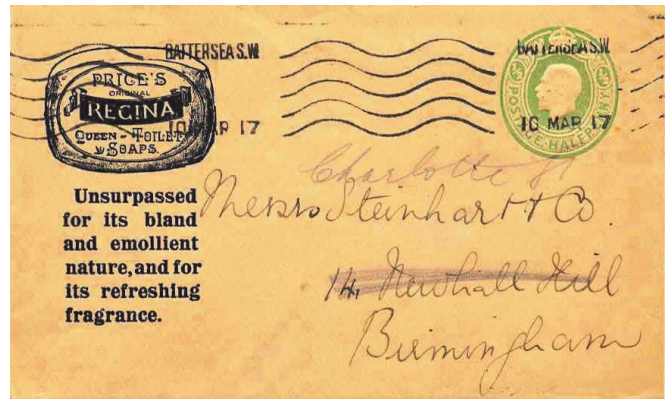 BATTERSEA S.W.
10 MAR 17
BATTERSEA S.W.
10 MAR 17
POSTAGE ONE HALFPENNY
PRICE'S
ORIGINAL
REGINA
QUEEN - TOILET
SOAPS.
Unsurpassed
for its bland
and emollient
nature, and for
its refreshing
fragrance.
Charlotte St
Messrs Steinhart & Co.
14, Newhall Hill
Birmingham